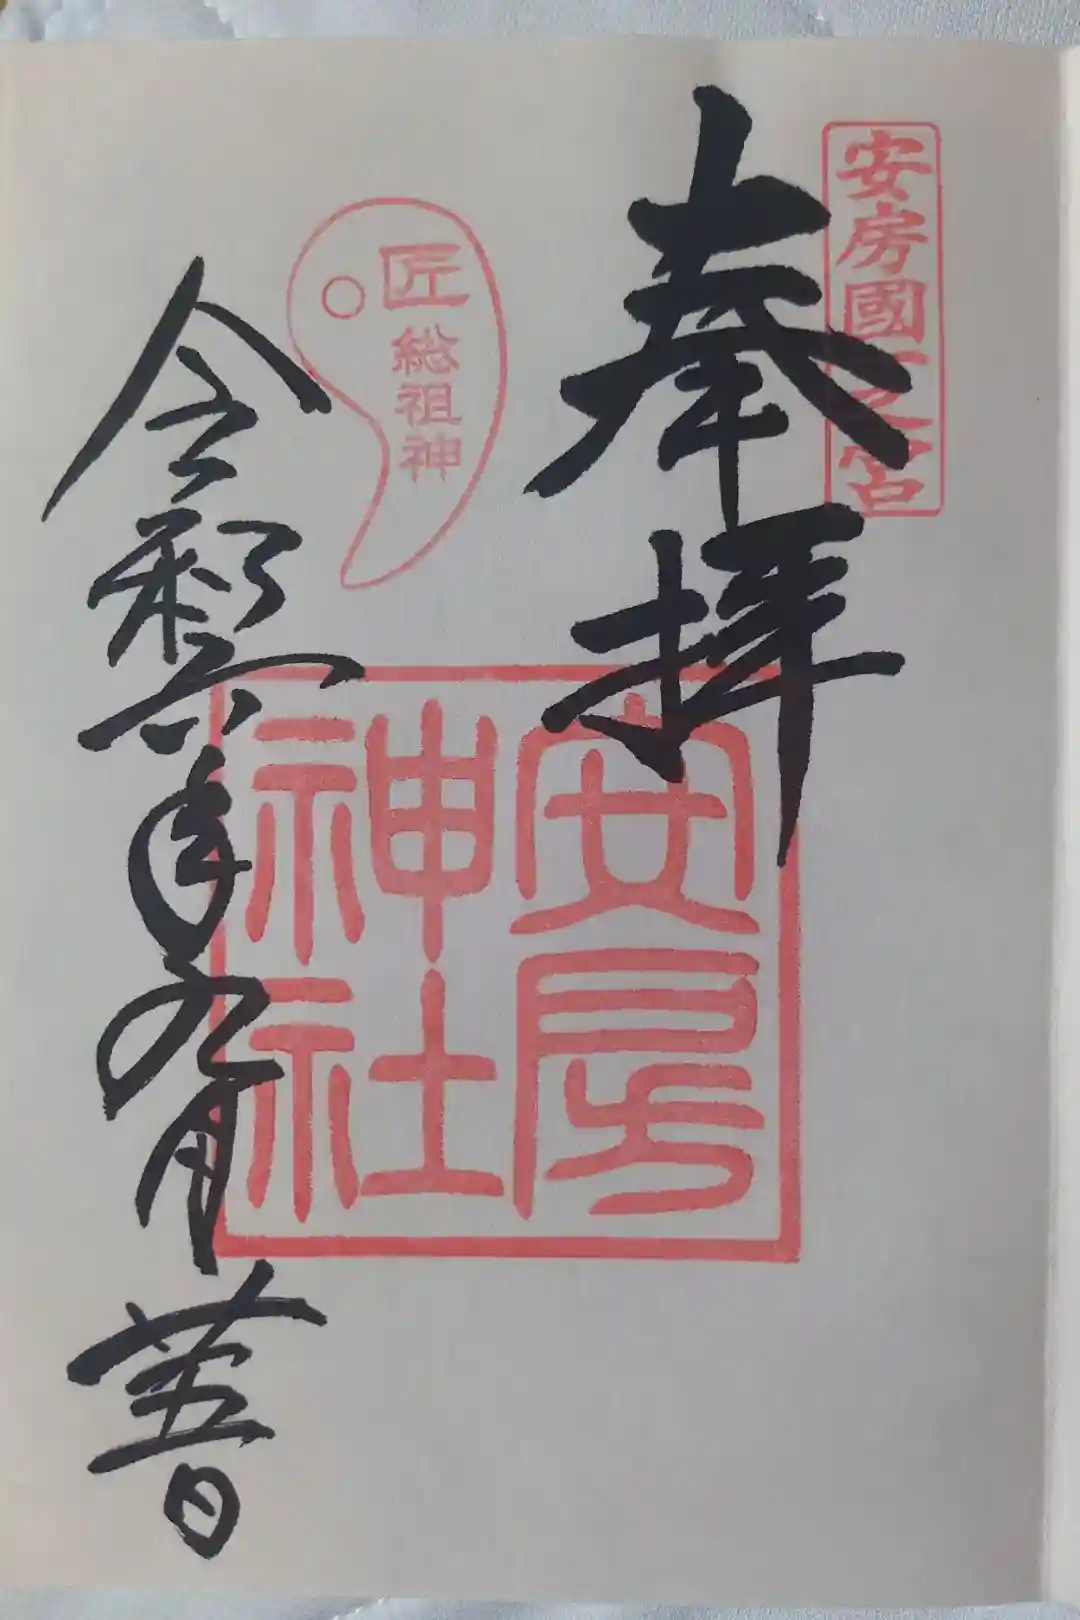 安房國一之宮
奉拝
安房
神社
匠
総祖神
令和六年九月廿五日